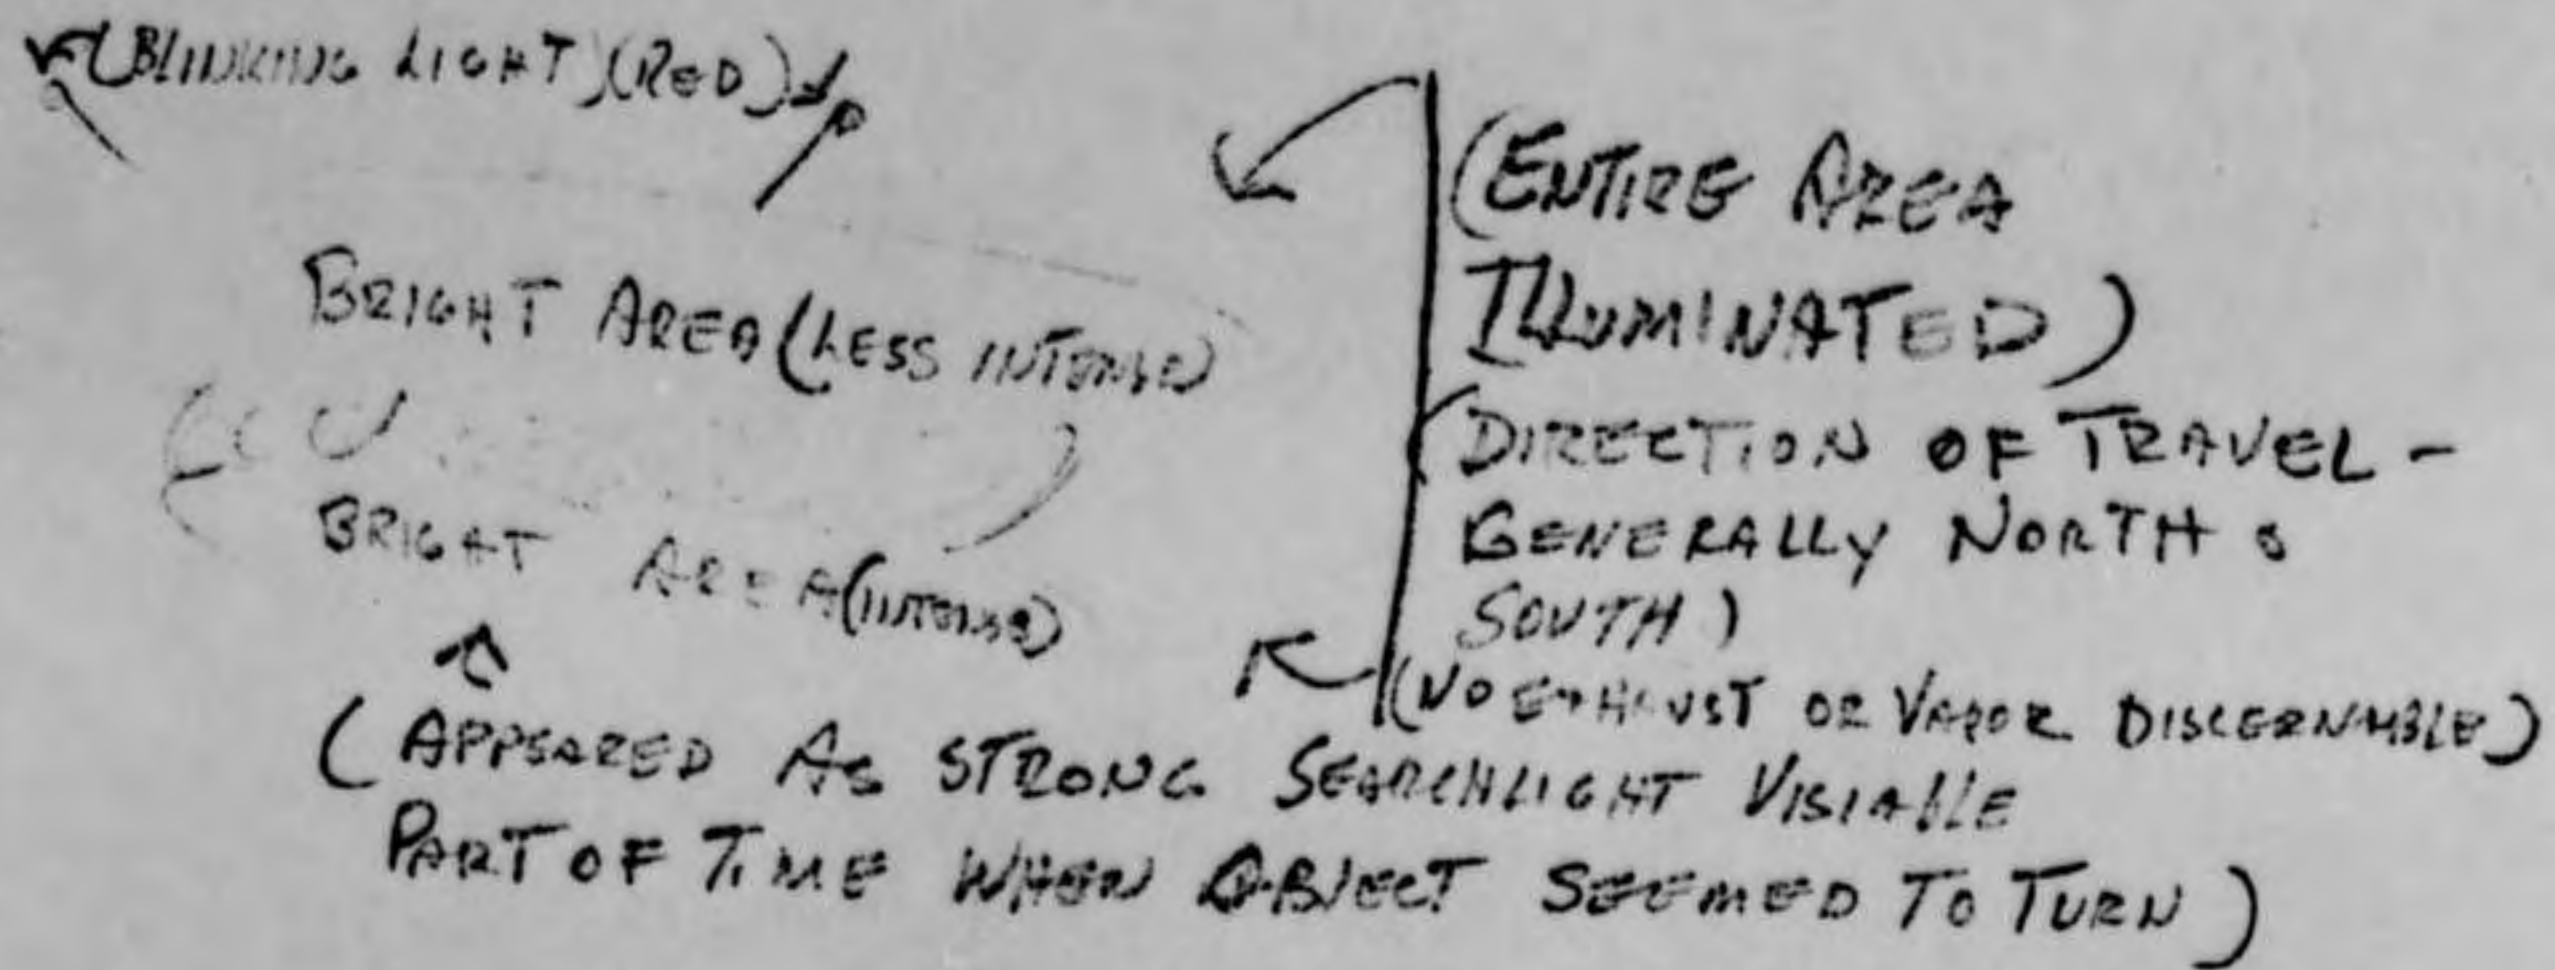 (BLINKING LIGHT)(RED)
BRIGHT AREA (LESS INTENSE)
BRIGHT AREA (INTENSE)
(ENTIRE AREA
ILLUMINATED)
(DIRECTION OF TRAVEL -
GENERALLY NORTH &
SOUTH)
(NO EXHAUST OR VAPOR DISCERNABLE)
(APPEARED AS STRONG SEARCHLIGHT VISIABLE
PART OF TIME WHEN OBJECT SEEMED TO TURN)